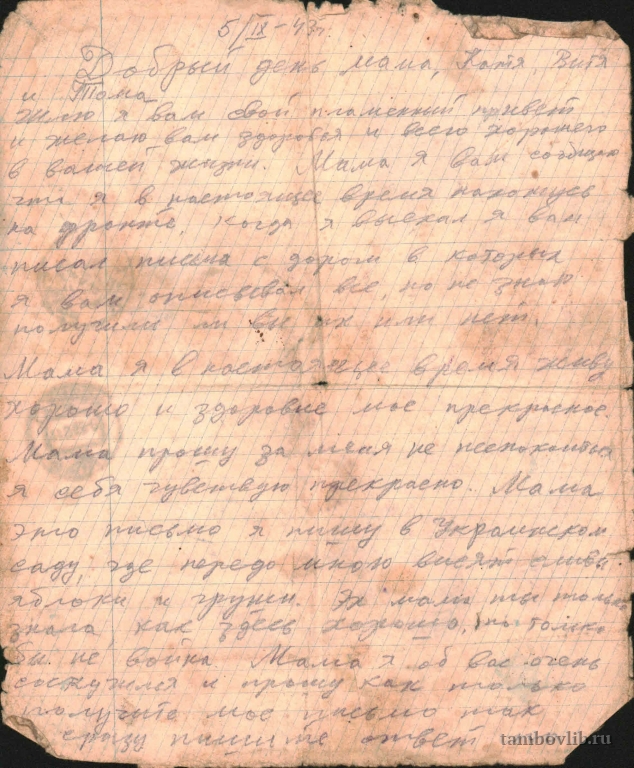 5/IX-43г.
Добрый день мама, Катя, Витя
и Тома
Шлю я вам свой пламенный привет
и желаю вам здоровья и всего хорошего
в вашей жизни. Мама я вам сообщаю
что я в настоящее время нахожусь
на фронте, когда я выехал я вам
писал письма с дороги в которых
я вам описывал все, но не знаю
получили ли вы их или нет.
Мама я в настоящее время живу
хорошо и здоровие мое прекрасное.
Мама прошу за меня не беспокоиться
я себя чувствую прекрасно. Мама
это письмо я пишу в Украинском
саду, где передо мною висят сливы
яблоки и груши. Эх мама ты только
знала как здесь хорошо, только
бы не война Мама я об вас очень
соскучился и прошу как только
получите мое письмо так
сразу пишите ответ
tambovlib.ru